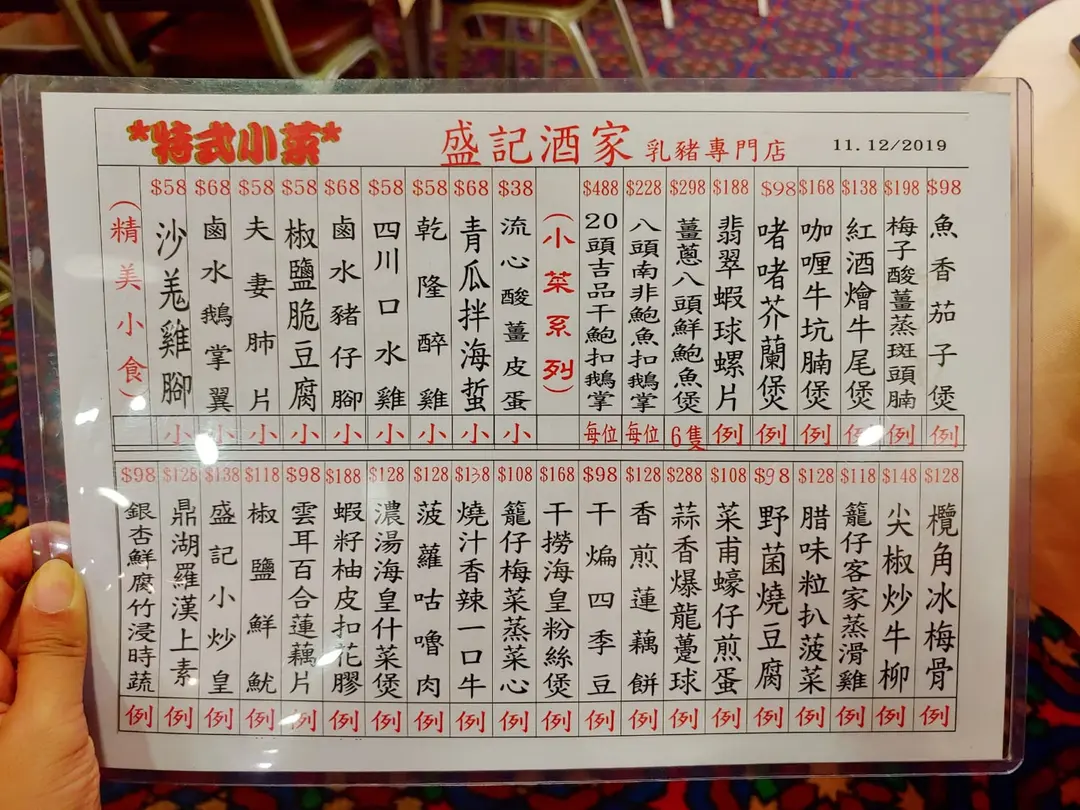 *特式小菜* 盛記酒家 乳豬專門店 11.12/2019
$98 魚香茄子煲 例
$198 梅子酸薑蒸斑頭腩 例
$138 紅酒燴牛尾煲 例
$168 咖喱牛坑腩煲 例
$98 啫啫芥蘭煲 例
$188 翡翠蝦球螺片 例
$298 薑蔥八頭鮮鮑魚煲 6隻
$228 八頭南非鮑魚扣鵝掌 每位
$488 20頭吉品干鮑扣鵝掌 每位
(小菜系列)
$38 流心酸薑皮蛋 小
$68 青瓜拌海蜇 小
$58 乾隆醉雞 小
$58 四川口水雞 小
$68 鹵水豬仔腳 小
$58 椒鹽脆豆腐 小
$58 夫妻肺片 小
$68 鹵水鵝掌翼 小
$58 沙羗雞腳 小
(精美小食)
$128 欖角冰梅骨 例
$148 尖椒炒牛柳 例
$118 籠仔客家蒸滑雞 例
$128 腊味粒扒菠菜 例
$98 野菌燒豆腐 例
$108 菜甫蠔仔煎蛋 例
$288 蒜香爆龍躉球 例
$128 香煎蓮藕餅 例
$98 干煸四季豆 例
$168 干撈海皇粉絲煲 例
$108 籠仔梅菜蒸菜心 例
$138 燒汁香辣一口牛 例
$128 菠蘿咕嚕肉 例
$128 濃湯海皇什菜煲 例
$188 蝦籽柚皮扣花膠 例
$98 雲耳百合蓮藕片 例
$118 椒鹽鮮魷 例
$138 盛記小炒皇 例
$128 鼎湖羅漢上素 例
$98 銀杏鮮腐竹浸時蔬 例